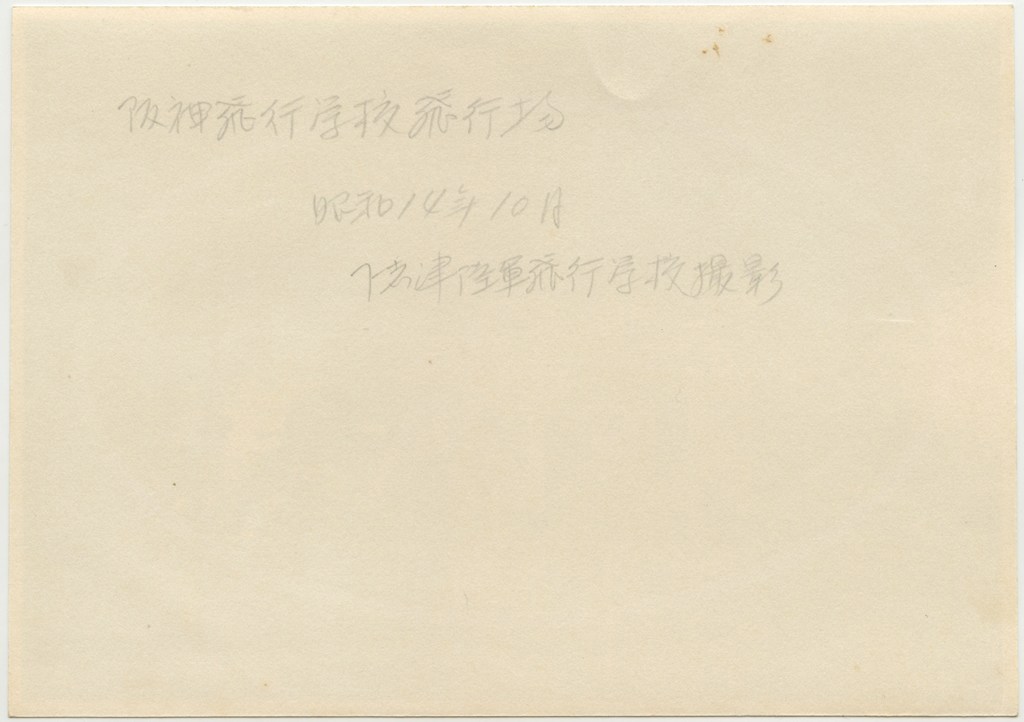 阪神飛行学校飛行場
昭和14年10月
下志津陸軍飛行学校撮影